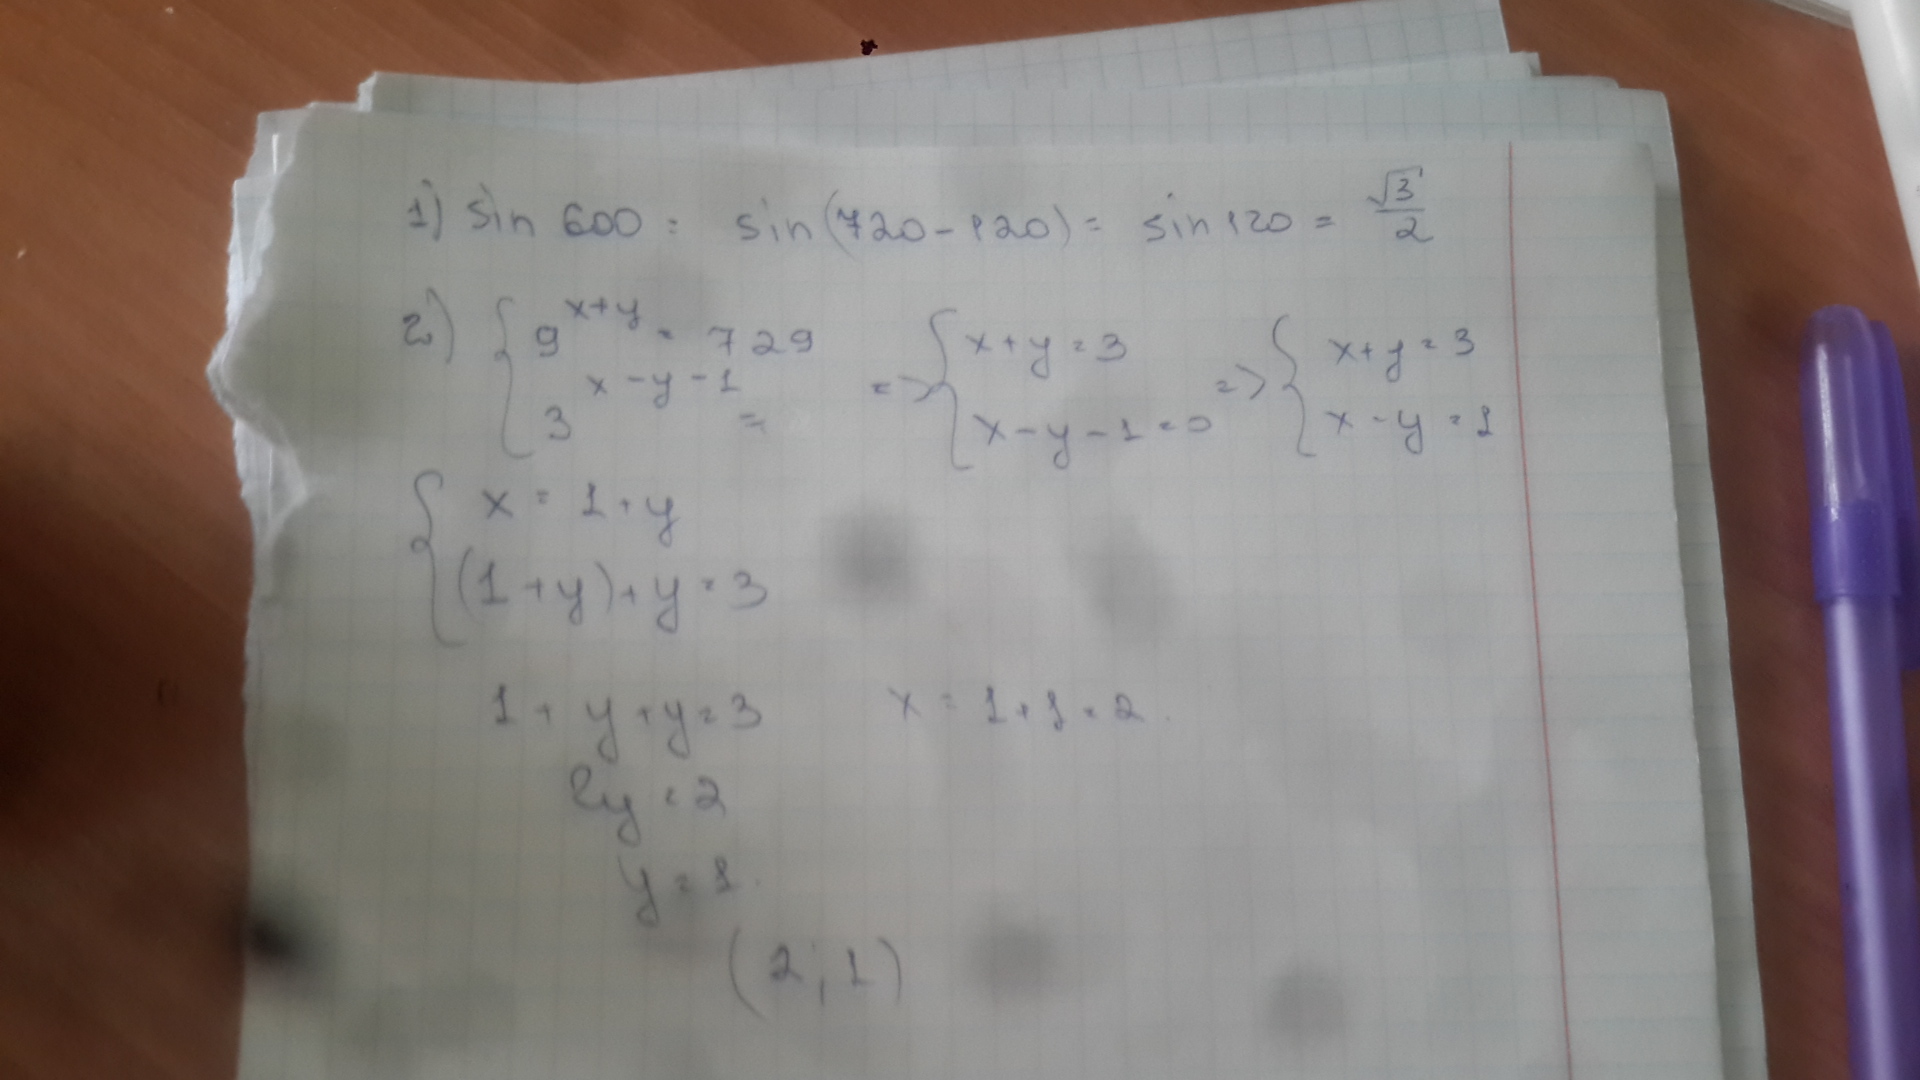 1) sin 600 = sin(720-120) = sin 120 = √3/2
2) { 9^(x+y) = 729 => { x+y=3 => { x+y=3
3^(x-y-1) = x-y-1=0 x-y=1
{ x = 1+y
(1+y)+y=3
1+y+y=3 x=1+1=2.
2y=2
y=1.
(2; 1)